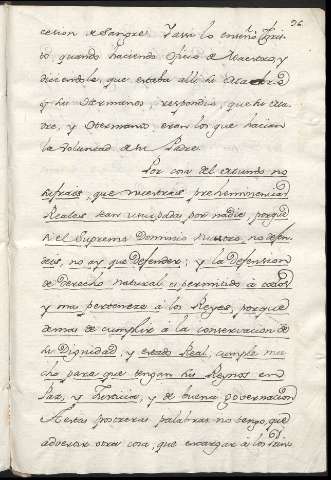 96
cesion de Sangre. Y assi lo enseño Chris-
to, quando haciendo oficio de Maestro, y
diciendole, que estaba alli su Madre
q sus Hermanos, respondiò, que su Ma-
dre, y Hermanos eran los que hacian
la voluntad de su Padre.
Por cosa del Mundo no
sufrais, que nuestras prehemiencias
Reales sean usurpadas por nadie porque
si el Supremo Dominio nuestro no defen-
deis, no ay que Defender; y la Defension
de Derecho natural es permitida à todos
y mas pertenece à los Reyes, porque
demas de cumplir à la conservacion de
su Dignidad, y estado Real, cumple mu-
cho para que tengan sus Reynos en
Paz, y Justicia, y de buena governacion
A estas postreras palabras no tengo que
advertir otra cosa, que encargar à los